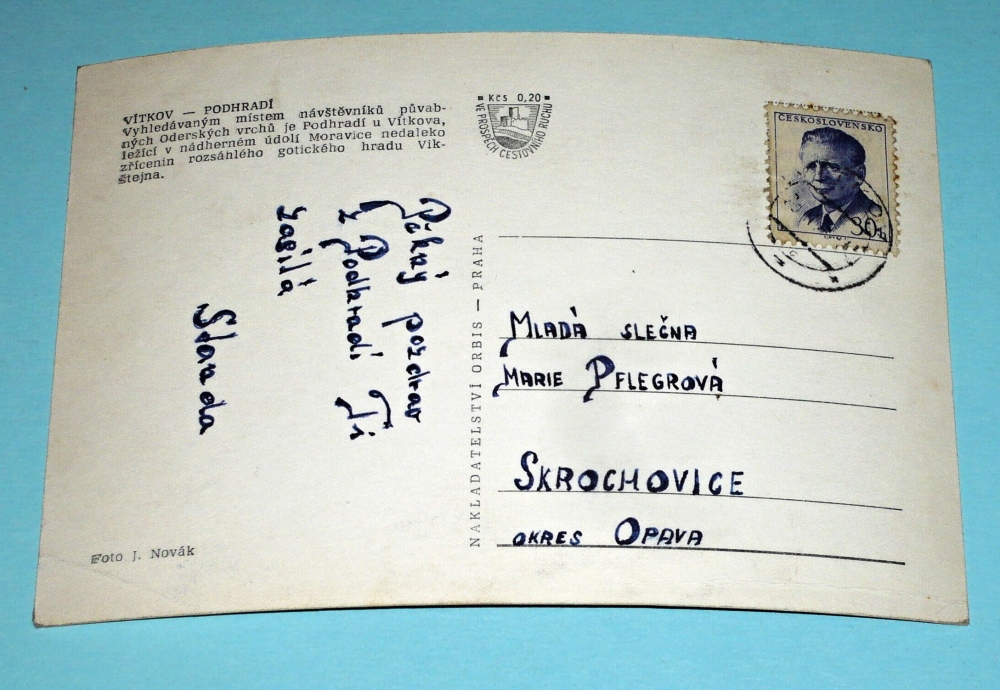 VÍTKOV — PODHRADÍ
Vyhledávaným místem návštěvníků půvab-
ných Oderských vrchů je Podhradí u Vítkova,
ležící v nádherném údolí Moravice nedaleko
zřícenin rozsáhlého gotického hradu Vik-
štejna.
Kčs 0,20
VE PROSPĚCH CESTOVNÍHO RUCHU
ČESKOSLOVENSKO
30h
Pěkný pozdrav
z Podhradí Ti
zasílá
Standa
NAKLADATELSTVÍ ORBIS — PRAHA
MLADÁ SLEČNA
MARIE PFLEGROVÁ
SKROCHOVICE
OKRES OPAVA
Foto J. Novák